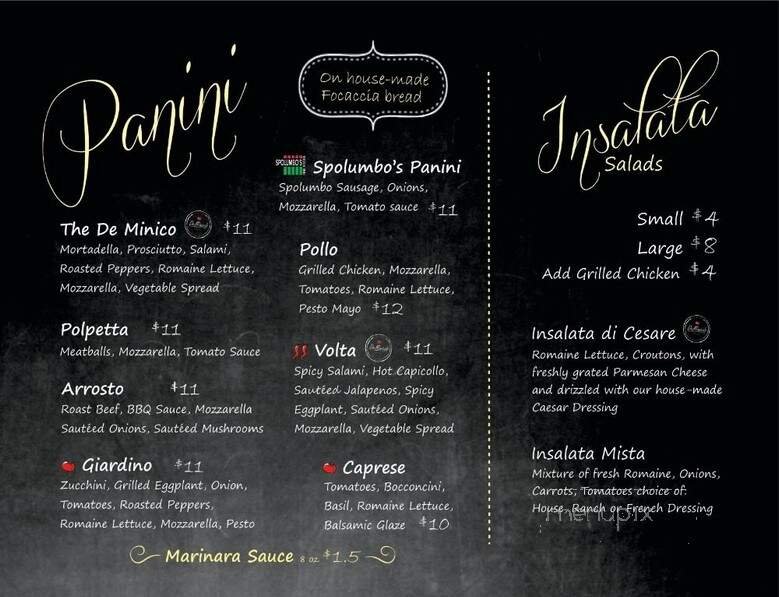 Panini
On house-made
Focaccia bread
The De Minico $11
Mortadella, Prosciutto, Salami,
Roasted Peppers, Romaine Lettuce,
Mozzarella, Vegetable Spread
Polpetta $11
Meatballs, Mozzarella, Tomato Sauce
Arrosto $11
Roast Beef, BBQ Sauce, Mozzarella
Sautéed Onions, Sautéed Mushrooms
Giardino $11
Zucchini, Grilled Eggplant, Onion,
Tomatoes, Roasted Peppers,
Romaine Lettuce, Mozzarella, Pesto
SPOLUMBO'S
Spolumbo's Panini
Spolumbo Sausage, Onions,
Mozzarella, Tomato sauce $11
Pollo
Grilled Chicken, Mozzarella,
Tomatoes, Romaine Lettuce,
Pesto Mayo $12
Volta $11
Spicy Salami, Hot Capicollo,
Sautéed Jalapenos, Spicy
Eggplant, Sautéed Onions,
Mozzarella, Vegetable Spread
Caprese
Tomatoes, Bocconcini,
Basil, Romaine Lettuce,
Balsamic Glaze $10
Marinara Sauce 8 oz $1.5
Insalata
Salads
Small $4
Large $8
Add Grilled Chicken $4
Insalata di Cesare
Romaine Lettuce, Croutons, with
freshly grated Parmesan Cheese
and drizzled with our house-made
Caesar Dressing
Insalata Mista
Mixture of fresh Romaine, Onions,
Carrots, Tomatoes choice of:
House, Ranch or French Dressing
menupix